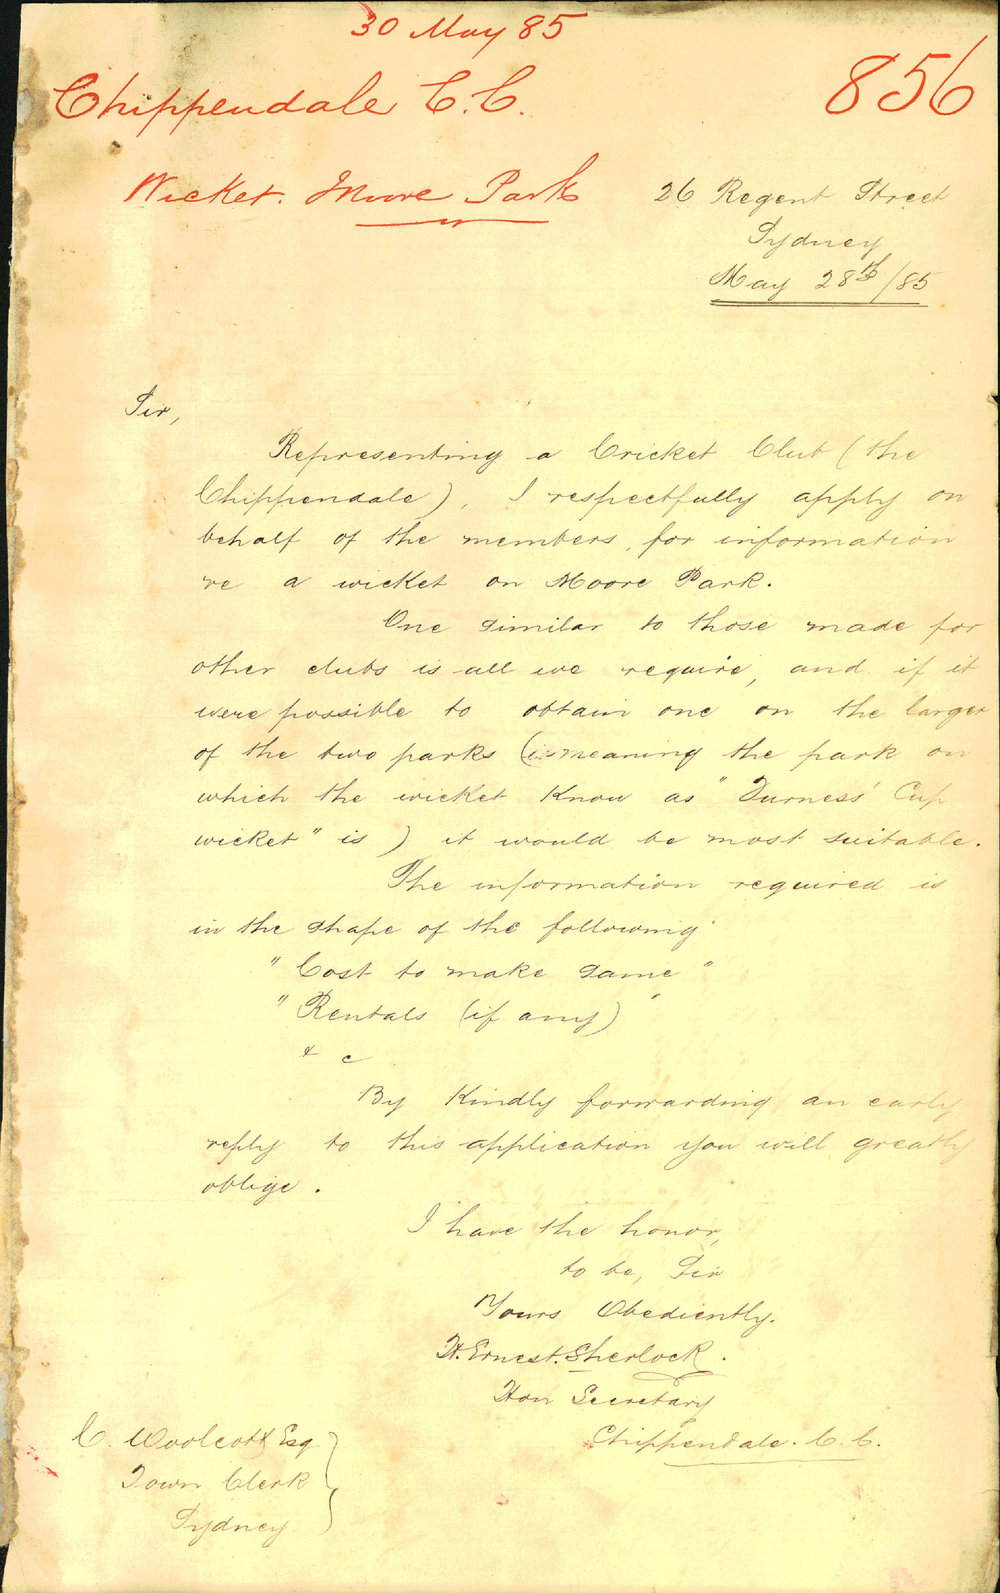 30 May 85
Chippendale C.C.
856
Wicket. Moore Park
26 Regent Street
Sydney
May 28th/85
Sir,
Representing a Cricket Club (the
Chippendale), I respectfully apply on
behalf of the members, for information
re a wicket on Moore Park.
One similar to those made for
other clubs is all we require, and if it
were possible to obtain one on the larger
of the two parks (meaning the park on
which the wicket know as "Furness' Cup
wicket" is) it would be most suitable.
The information required is
in the shape of the following
"Cost to make same"
"Rentals (if any)"
& c
By kindly forwarding an early
reply to this application you will greatly
oblige.
I have the honor,
to be, Sir
Yours Obediently.
H. Ernest. Sherlock.
Hon Secretary
Chippendale. C. C.
C. Woolcott Esq
Town Clerk
Sydney